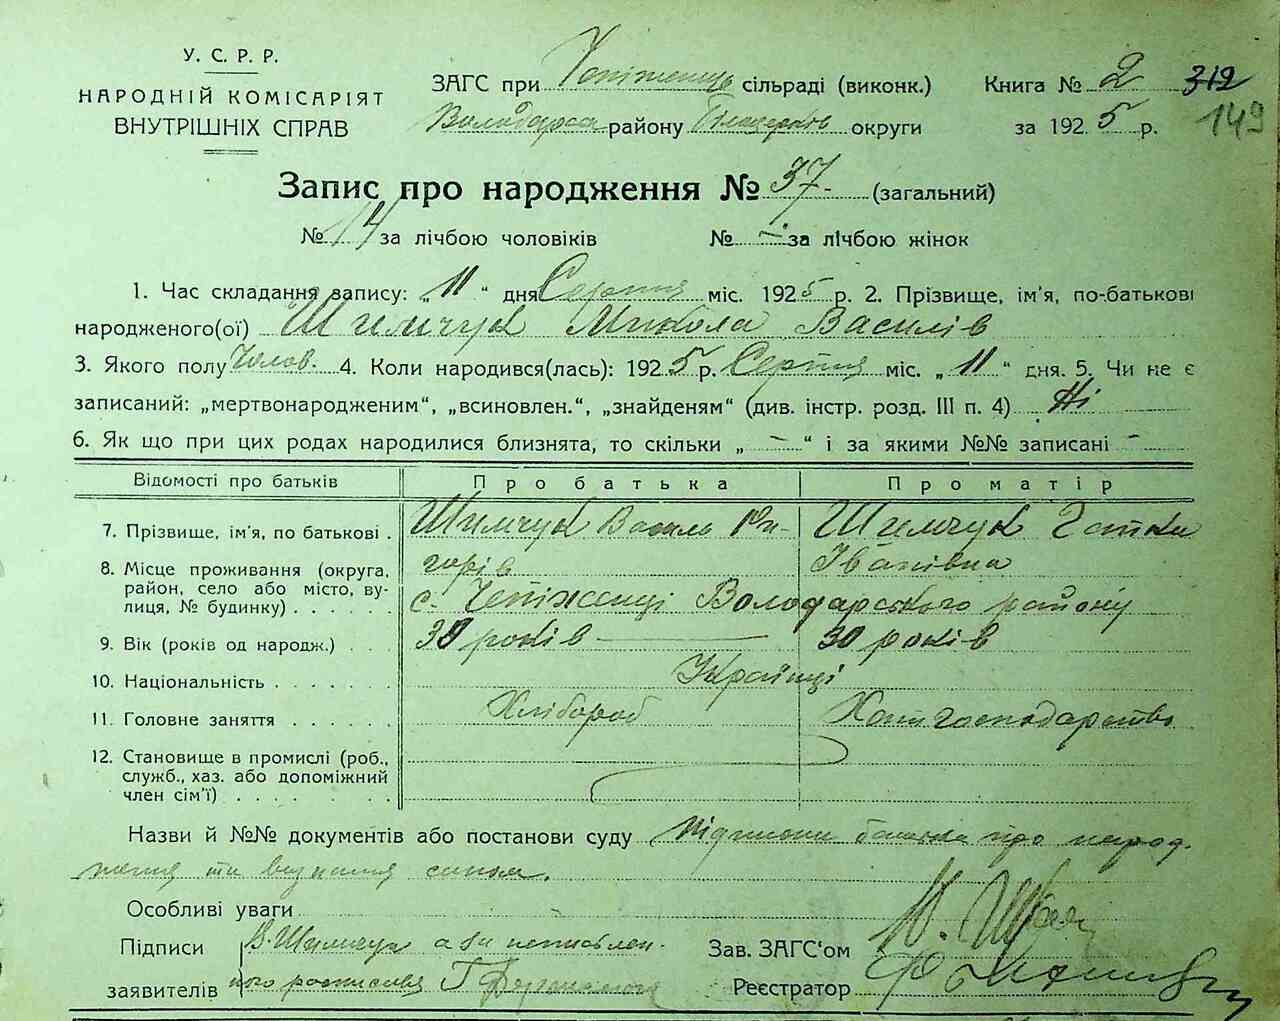 У. С. Р. Р.
НАРОДНІЙ КОМІСАРІЯТ
ВНУТРІШНІХ СПРАВ
ЗАГС при сільраді (виконк.) Книга № 2 312
Володарса району Білоцерків округи за 1925 р. 149
Запис про народження № 37 (загальний)
№ 14 за лічбою чоловіків № – за лічбою жінок
1. Час складання запису: „11“ дня Серпня міс. 1925 р. 2. Прізвище, ім'я, по-батькові
народженого(ої) Шимчук Микола Василів
3. Якого полу Чолов. 4. Коли народився(лась): 1925 р. Серпня міс. „11“ дня. 5. Чи не є
записаний: „мертвонародженим“, „всиновлен.“, „знайденям“ (див. інстр. розд. III п. 4) Ні
6. Як що при цих родах народилися близнята, то скільки „–“ і за якими №№ записані –
Відомості про батьків Про батька Про матір
7. Прізвище, ім'я, по батькові . Шимчук Василь Гри- Шимчук
горів Іванівна
8. Місце проживання (округа, район, село або місто, ву-
лиця, № будинку) . . . . . . с. Чепіженці Володарського району
9. Вік (років од народж.) . . . 30 років 30 років
10. Національність . . . . . . . Українці
11. Головне заняття . . . . . . Хлібороб Хатн господарство
12. Становище в промислі (роб.,
служб., хаз. або допоміжний
член сім'ї) . . . . . . . .
Назви й №№ документів або постанови суду батька про народ-
ження та визнання сином.
Особливі уваги
Підписи В. Шимчук а за неписьмен- Зав. ЗАГС'ом
заявителів ного росписався Реєстратор